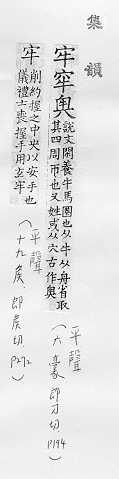 集韻
牢窂㚎
說文閑養牛馬圈也从牛从舟省取
其四周帀也又姓或从穴古作㚎
（平聲
六豪 郎刀切
P194）
牢
削約握之中央以安手也
儀禮士喪握手用玄牢
（平聲
十九侯、郎侯切
P272）